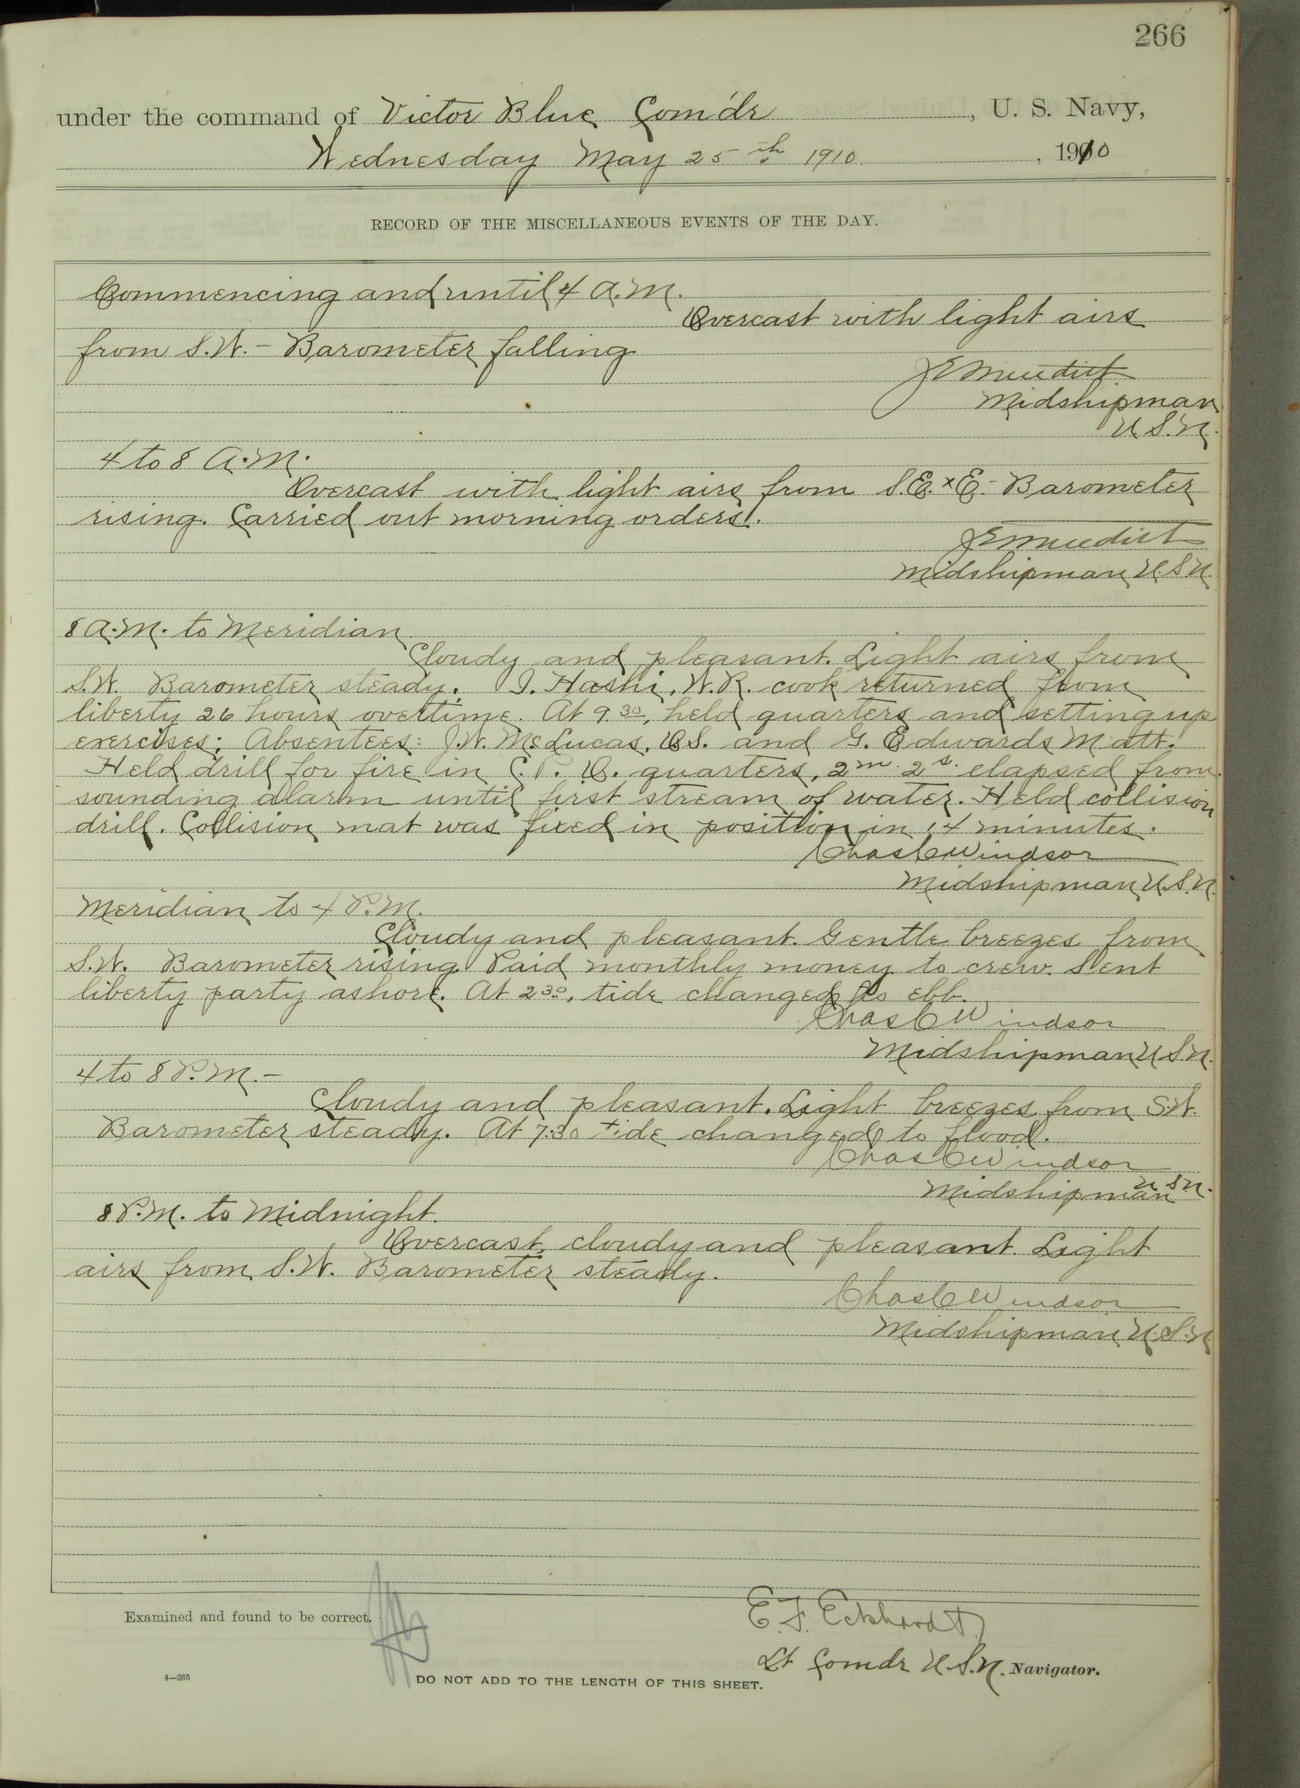 266
under the command of Victor Blue Com'dr , U. S. Navy,
Wednesday May 25th 1910. , 1910
RECORD OF THE MISCELLANEOUS EVENTS OF THE DAY.
Commencing and until 4 A.M.
Overcast with light airs
from S.W. - Barometer falling
Midshipman
U.S.N.
4 to 8 A.M.
Overcast with light airs from S.E. x E. - Barometer
rising. Carried out morning orders.
Midshipman U.S.N.
8 A.M. to Meridian
Cloudy and pleasant. Light airs from
S.W. Barometer steady. I. Hashi, W.R. cook returned from
liberty 26 hours overtime. At 9.30, held quarters and setting up
exercises; Absentees: J.W. McLucas, O.S. and G. Edwards Matt.
Held drill for fire in C.P.O. quarters, 2m. 2s. elapsed from
sounding alarm until first stream of water. Held collision
drill. Collision mat was fixed in position in 14 minutes.
Chas C Windsor
Midshipman U.S.N.
Meridian to 4 P.M.
Cloudy and pleasant. Gentle breezes from
S.W. Barometer rising. Paid monthly money to crew. Sent
liberty party ashore. At 2.30, tide changed to ebb.
Chas C Windsor
Midshipman U.S.N.
4 to 8 P.M. -
Cloudy and pleasant. Light breezes from S.W.
Barometer steady. At 7:30 tide changed to flood.
Chas C Windsor
Midshipman U.S.N.
8 P.M. to Midnight.
Overcast, cloudy and pleasant. Light
airs from S.W. Barometer steady.
Chas C Windsor
Midshipman U.S.N.
Examined and found to be correct.
E. F. Eckhardt
Lt Comdr U.S.N. Navigator.
4—265
DO NOT ADD TO THE LENGTH OF THIS SHEET.